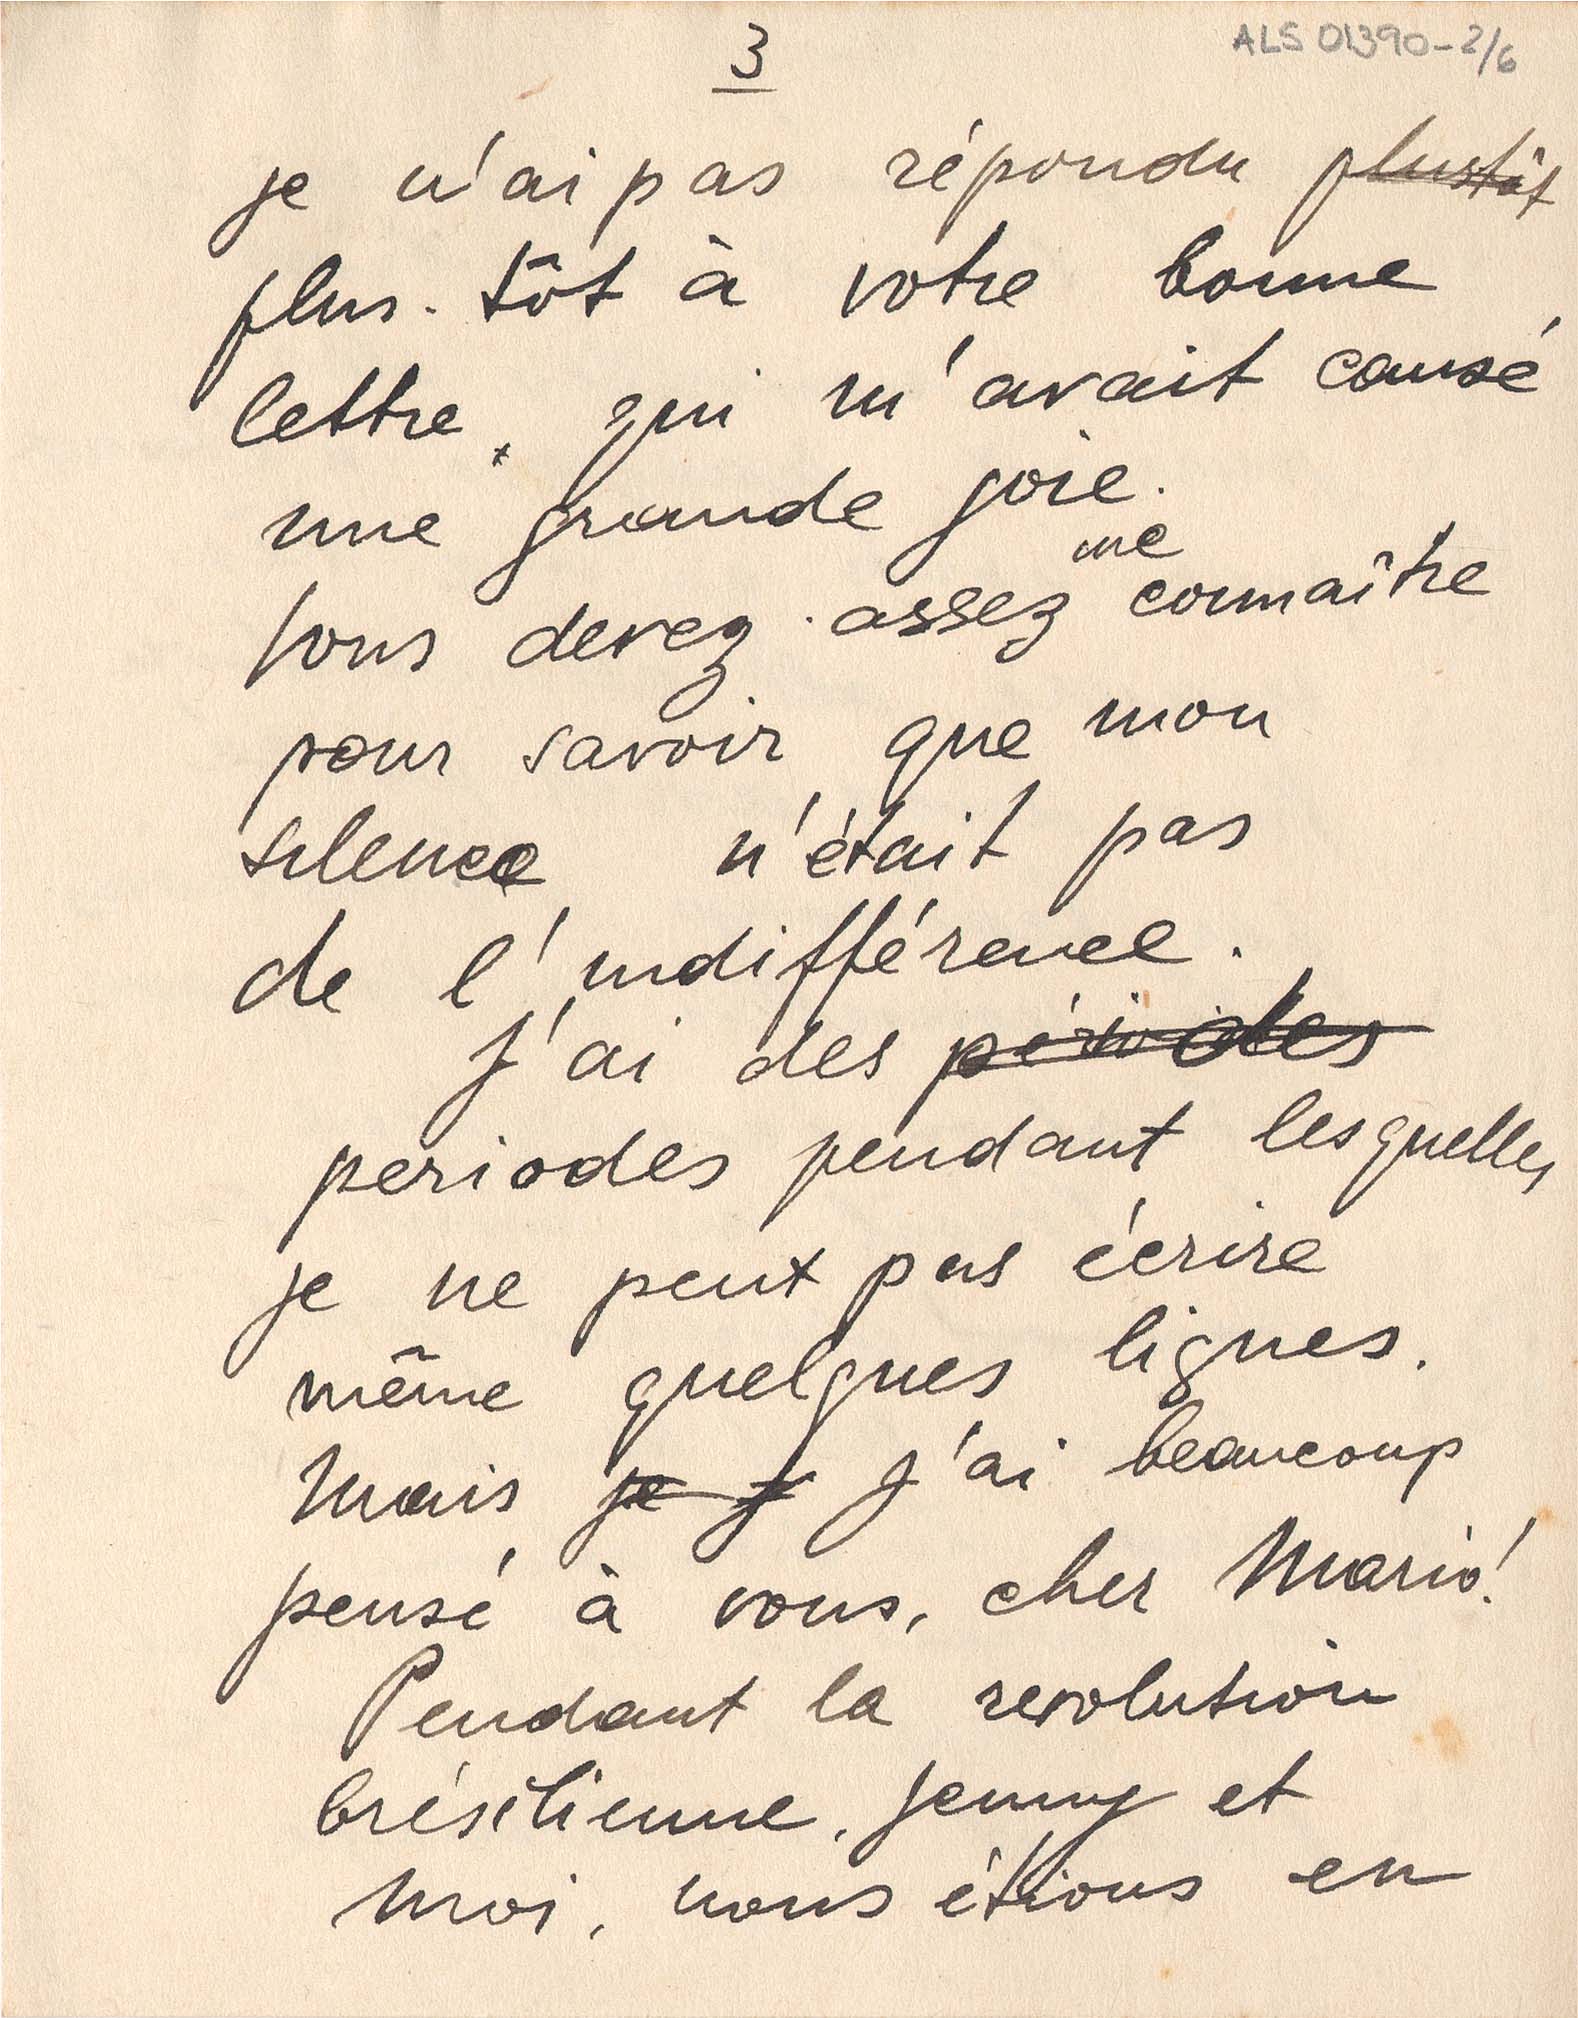 3
ALS 01390-2/6
je n'ai pas répondu plustôt
plus-tôt à votre bonne
lettre, qui m'avait causé
une grande joie.
me
Vous devez assez connaître
pour savoir que mon
silence n'était pas
de l'indifférence.
J'ai des périodes
periodes pendant lesquelles
je ne peut pas écrire
même quelques lignes.
Mais je j j'ai beaucoup
pensé à vous, cher Mario!
Pendant la revolution
brésilienne, Jenny et
moi, nous étions en